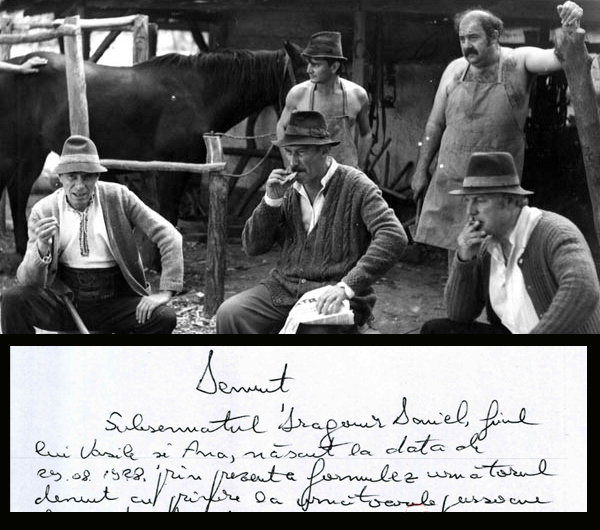 Denunt
Subsemnatul Dragomir Daniel, fiul
lui Vasile si Ana, născut la data de
prin prezenta formulez următorul
denunt cu privire la următoarele persoane